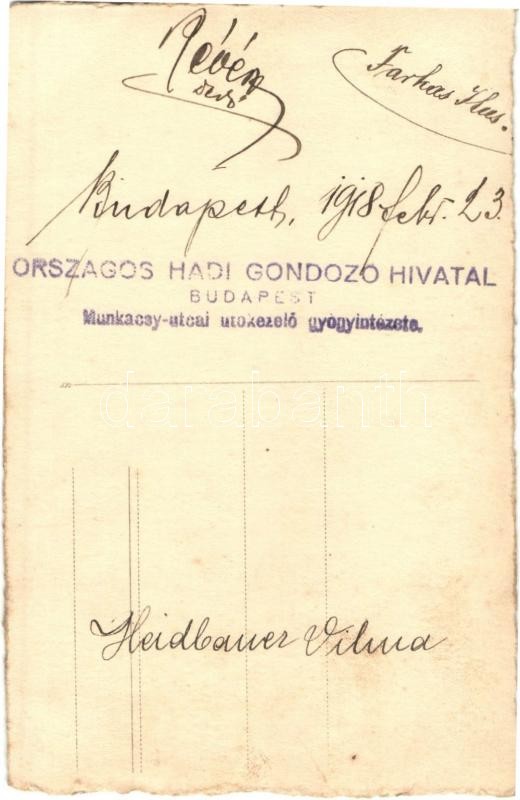 Révész
Farkas Ilus.
Budapest, 1918 febr. 23.
ORSZAGOS HADI GONDOZÓ HIVATAL
BUDAPEST
Munkacsy-utcai utokezelő gyógyintézete.
darabanth
Heidbauer Vilma